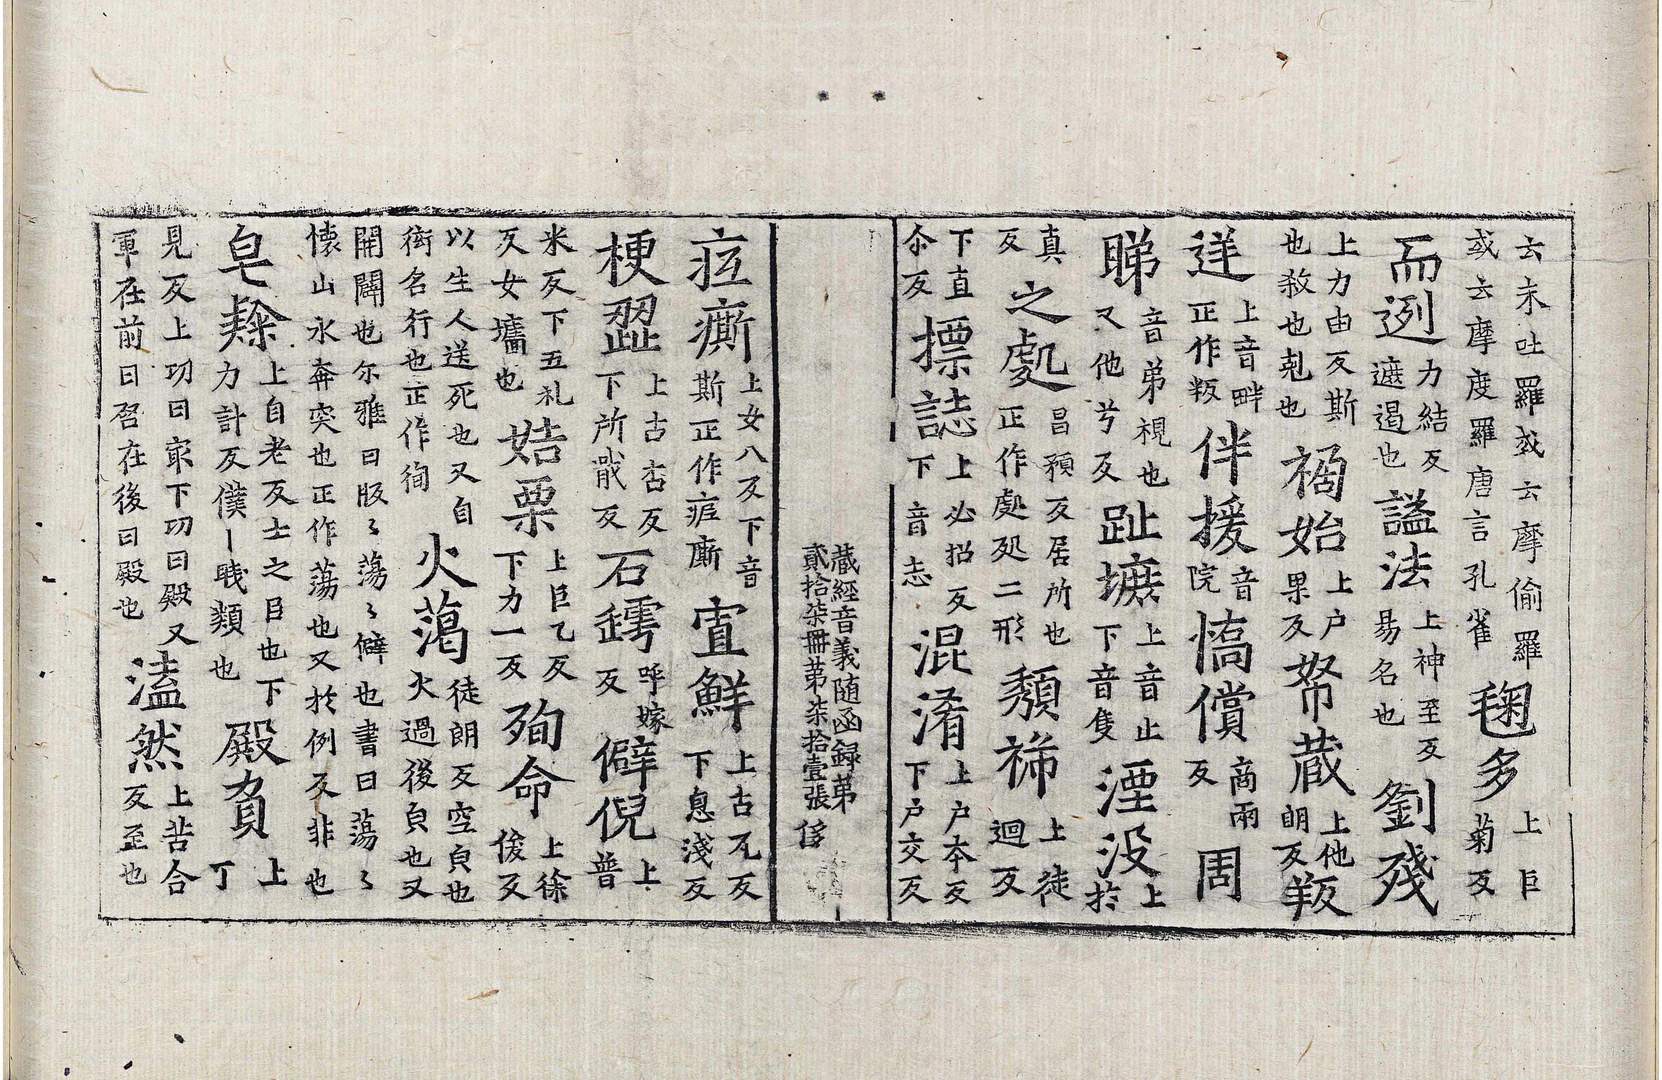 云未吐羅或云摩偷羅
或云摩度羅唐言孔雀 毱多 上巨
菊反
而迾 力結反
遮遏也 謚法 上神至反
易名也 劉殘
上力由反斯
也敘也剋也 禍始 上戶
果反 帑蔵 上他
朗反 䩯
逆 上音畔
正作叛 伴援 音
院 憍償 商兩
反 周
睇 音弟視也
又他兮反 趾墌 上音止
下音隻 湮没 上
於
真
反 之處 昌預反居所也
正作處処二形 頹祶 上徒
迴反
下直
尒反 摽誌 上必招反
下音志 混淆 上戶夲反
下戶交反
蔵經音義随函録第
貳拾柒冊第柒拾壹張 侈
疘㾷 上女八反下音
斯正作㽱廝 寡鮮 上古瓦反
下息淺反
梗澀 上古杏反
下所戢反 石罅 呼嫁
反 僻倪 上
普
米反下五礼
反女墻也 姞栗 上巨乙反
下力一反 殉命 上徐
俊反
以生人送死也又自
衒名行也正作徇 火蕩 徒朗反空㒵也
火過後㒵也又
開闢也尔雅曰版〻蕩〻僻也書曰蕩〻
懐山水奔突也正作蕩也又於例反非也
皂隸 上自老反士之臣也下
力計反僕丨賎類也 殿負 上
丁
見反上功曰㝡下功曰殿又
軍在前曰啓在後曰殿也 溘然 上苦合
反至也